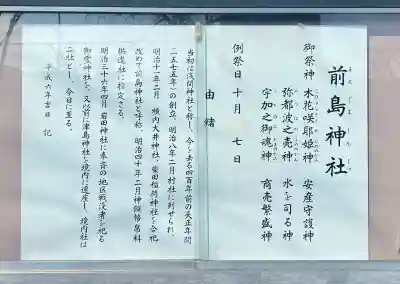 前島神社
まえじまじんじゃ
御祭神 木花咲耶姫神 安産守護神
弥都波之売神 水を司る神
宇加之御魂神 商売繁盛神
例祭日 十月 七日
由緒
当初は浅間神社と称し、今を去る四百年前の天正年間
(一五七五年)の創立、明治八年二月村社に列せられ、
明治十一年二月 横内大井神社、柴田稲荷神社を合祀
改めて前島神社と呼称、明治四十年二月神饌幣帛料
供進社に指定さる。
明治三十六年四月 岩田神社に本宮の地区戦没者を祀る
御霊神社を、又以前に津島神社を境内に遷座し、境内社は
二社とし、今日に至る。
平成六年吉日 記